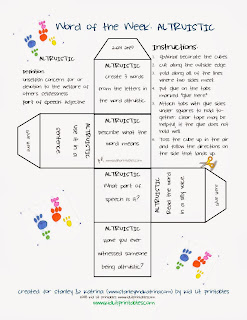 Word of the Week: ALTRUISTIC
ALTRUISTIC
Definition:
unselfish concern for or
devotion to the welfare of
others; selflessness
part of speech: adjective
glue here
ALTRUISTIC
create 3 words
from the letters in
the word altruistic
Instructions:
1. optional: decorate the cubes
2. cut along the outside edge
3. fold along all of the lines
where two sides meet.
4. put glue on the tabs
marked "glue here"
5. Attach tabs with glue sides
under squares to hold to-
gether. clear tape may be
helpful, is the glue does not
hold well
6. Toss the cube up in the air
and follow the directions on
the side that lands up.
glue here
ALTRUISTIC
use it in a
sentence
ALTRUISTIC
describe what the
word means
ALTRUISTIC
Read the word
in a silly voice
glue here
ALTRUISTIC
What part of
speech is it?
ALTRUISTIC
Have you ever
witnessed someone
being altruistic?
created for Stanley & Katrina (www.stanleyandkatrina.com) by Kid Lit Printables